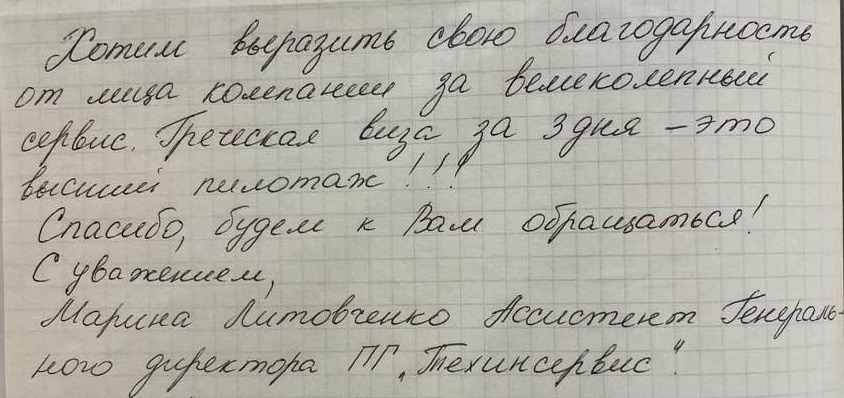 Хотим выразить свою благодарность
от лица компании за великолепный
сервис. Греческая виза за 3 дня – это
высший пилотаж!!!
Спасибо, будем к Вам обращаться!
С уважением,
Марина Литовченко Ассистент Генераль-
ного директора ПГ „Техинсервис".